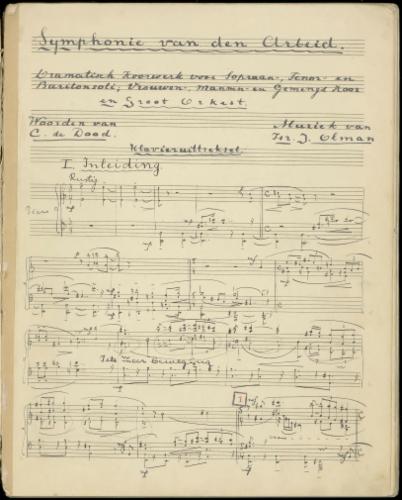 Symphonie van den Arbeid.
Dramatisch Koorwerk voor Sopraan-, Tenor- en
Baritonsoli, Vrouwen-, mannen- en Gemengd Koor
en Groot Orkest.
Woorden van
C. de Dood.
Muziek van
Is. J. Olman
Klavieruittreksel.
I. Inleiding
Rustig
mp
Iets meer beweging
1